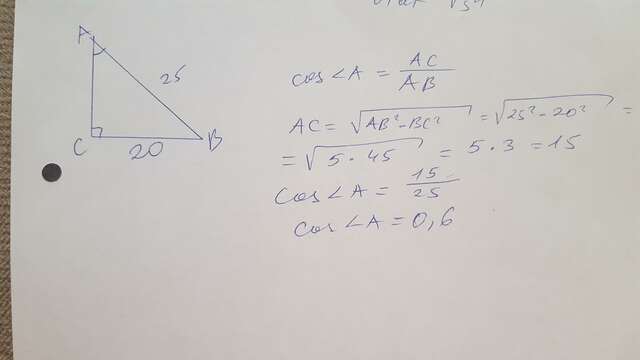 A
25
C
20
B
cos∠A = AC/AB
AC = √(AB² - BC²) = √(25² - 20²) =
= √(5 · 45) = 5 · 3 = 15
Cos∠A = 15/25
cos∠A = 0,6